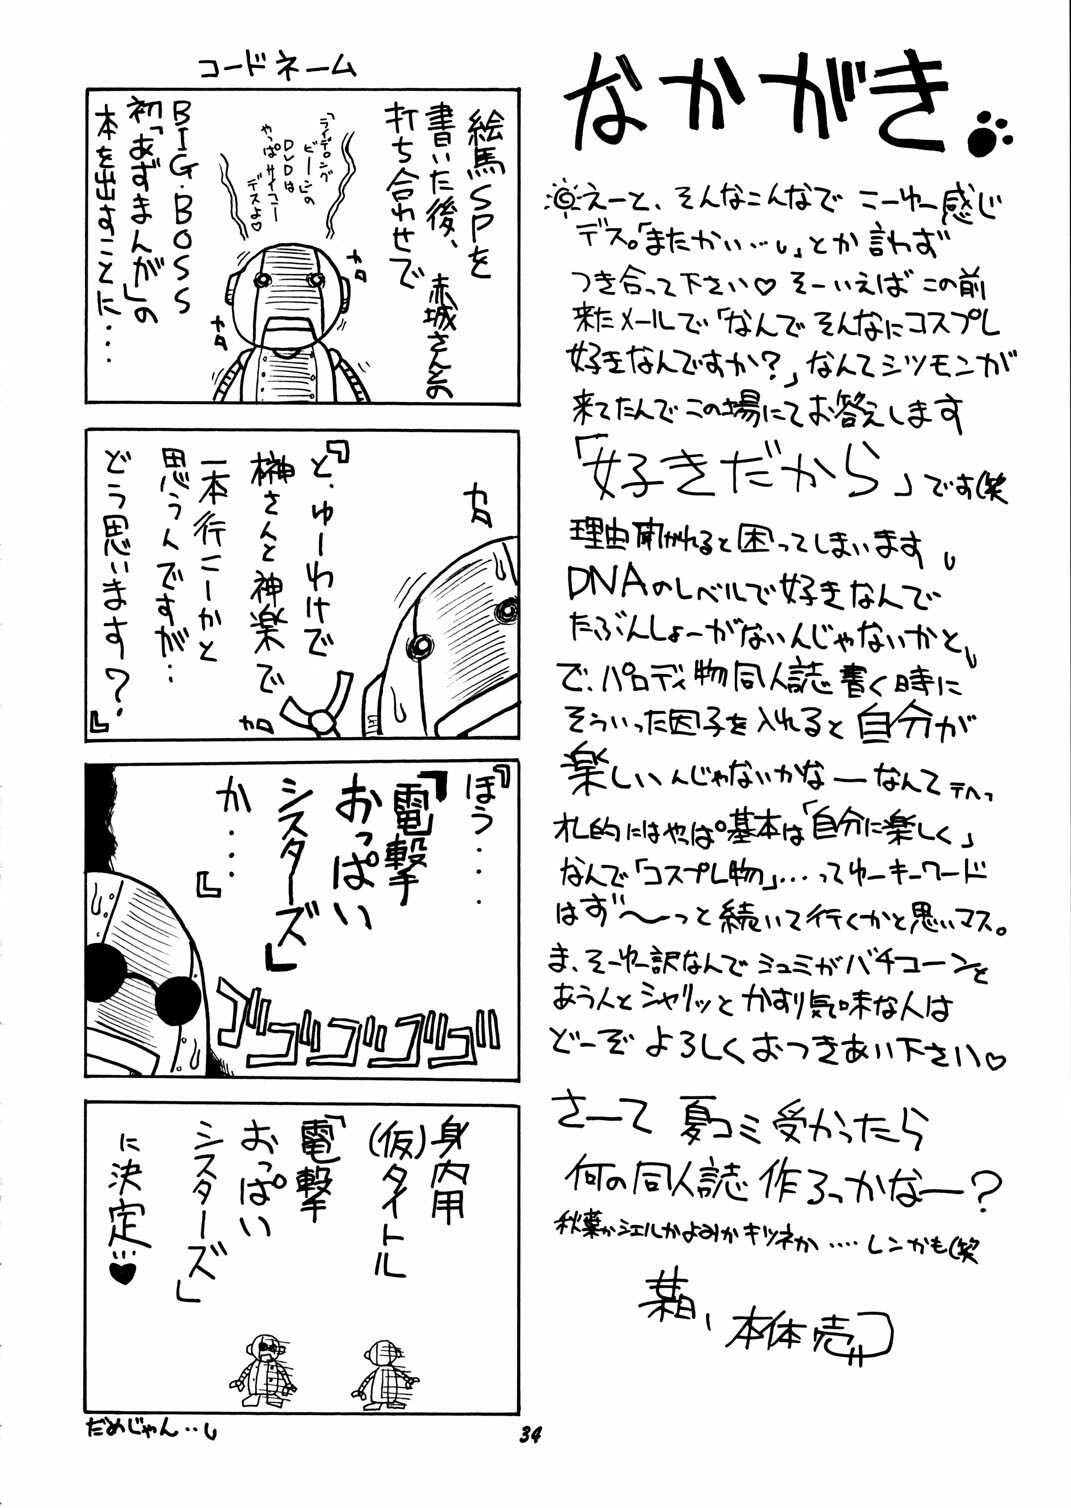 コードネーム
絵馬SPを
書いた後、赤城さんとの
打ち合わせで
「ライデング
ビーン」の
DVDは
やっぱサイコー
デスよ♡
カタ
カタ
BIG・BOSS
初「あずまんが」の
本を出すことに・・・・
『と、ゆーわけで
榊さんと神楽で
一本行こーかと
思うんですが・・
どう思います?』
カタ
カタ
『ほう・・・・
『電撃
おっぱい
シスターズ』
か・・・』
ゴゴゴゴゴゴ
身内用
(仮)タイトル
「電撃
おっぱい
シスターズ」
に決定…♥
だめじゃん・・
なかがき
◎えーと、そんなこんなで こーゆー感じ
デス。「またかい…」とか言わず
つき合って下さい♡ そーいえば この前
来たメールで「なんで そんなにコスプレ
好きなんですか?」なんてシツモンが
来てたんで この場にてお答えします
「好きだから」です(笑
理由聞かれると困ってしまいます
DNAのレベルで好きなんで
たぶんしょーがないんじゃないかと
で、パロディ物同人誌書く時に
そういった因子を入れると自分が
楽しいんじゃないかなーなんて テヘっ
札的にはやっぱ基本は「自分に楽しく」
なんで「コスプレ物」…ってゆーキーワード
はず〜っと続いて行くかと思いマス。
ま、そーゆー訳なんで シュミがバチコーンと
あう人とシャリッとかすり気味な人は
どーぞ よろしくおつきあい下さい♡
さーて 夏コミ受かったら
何の同人誌作ろっかなー?
秋葉かシエルかよみかキツネか‥‥レンかも(笑
本体売
34